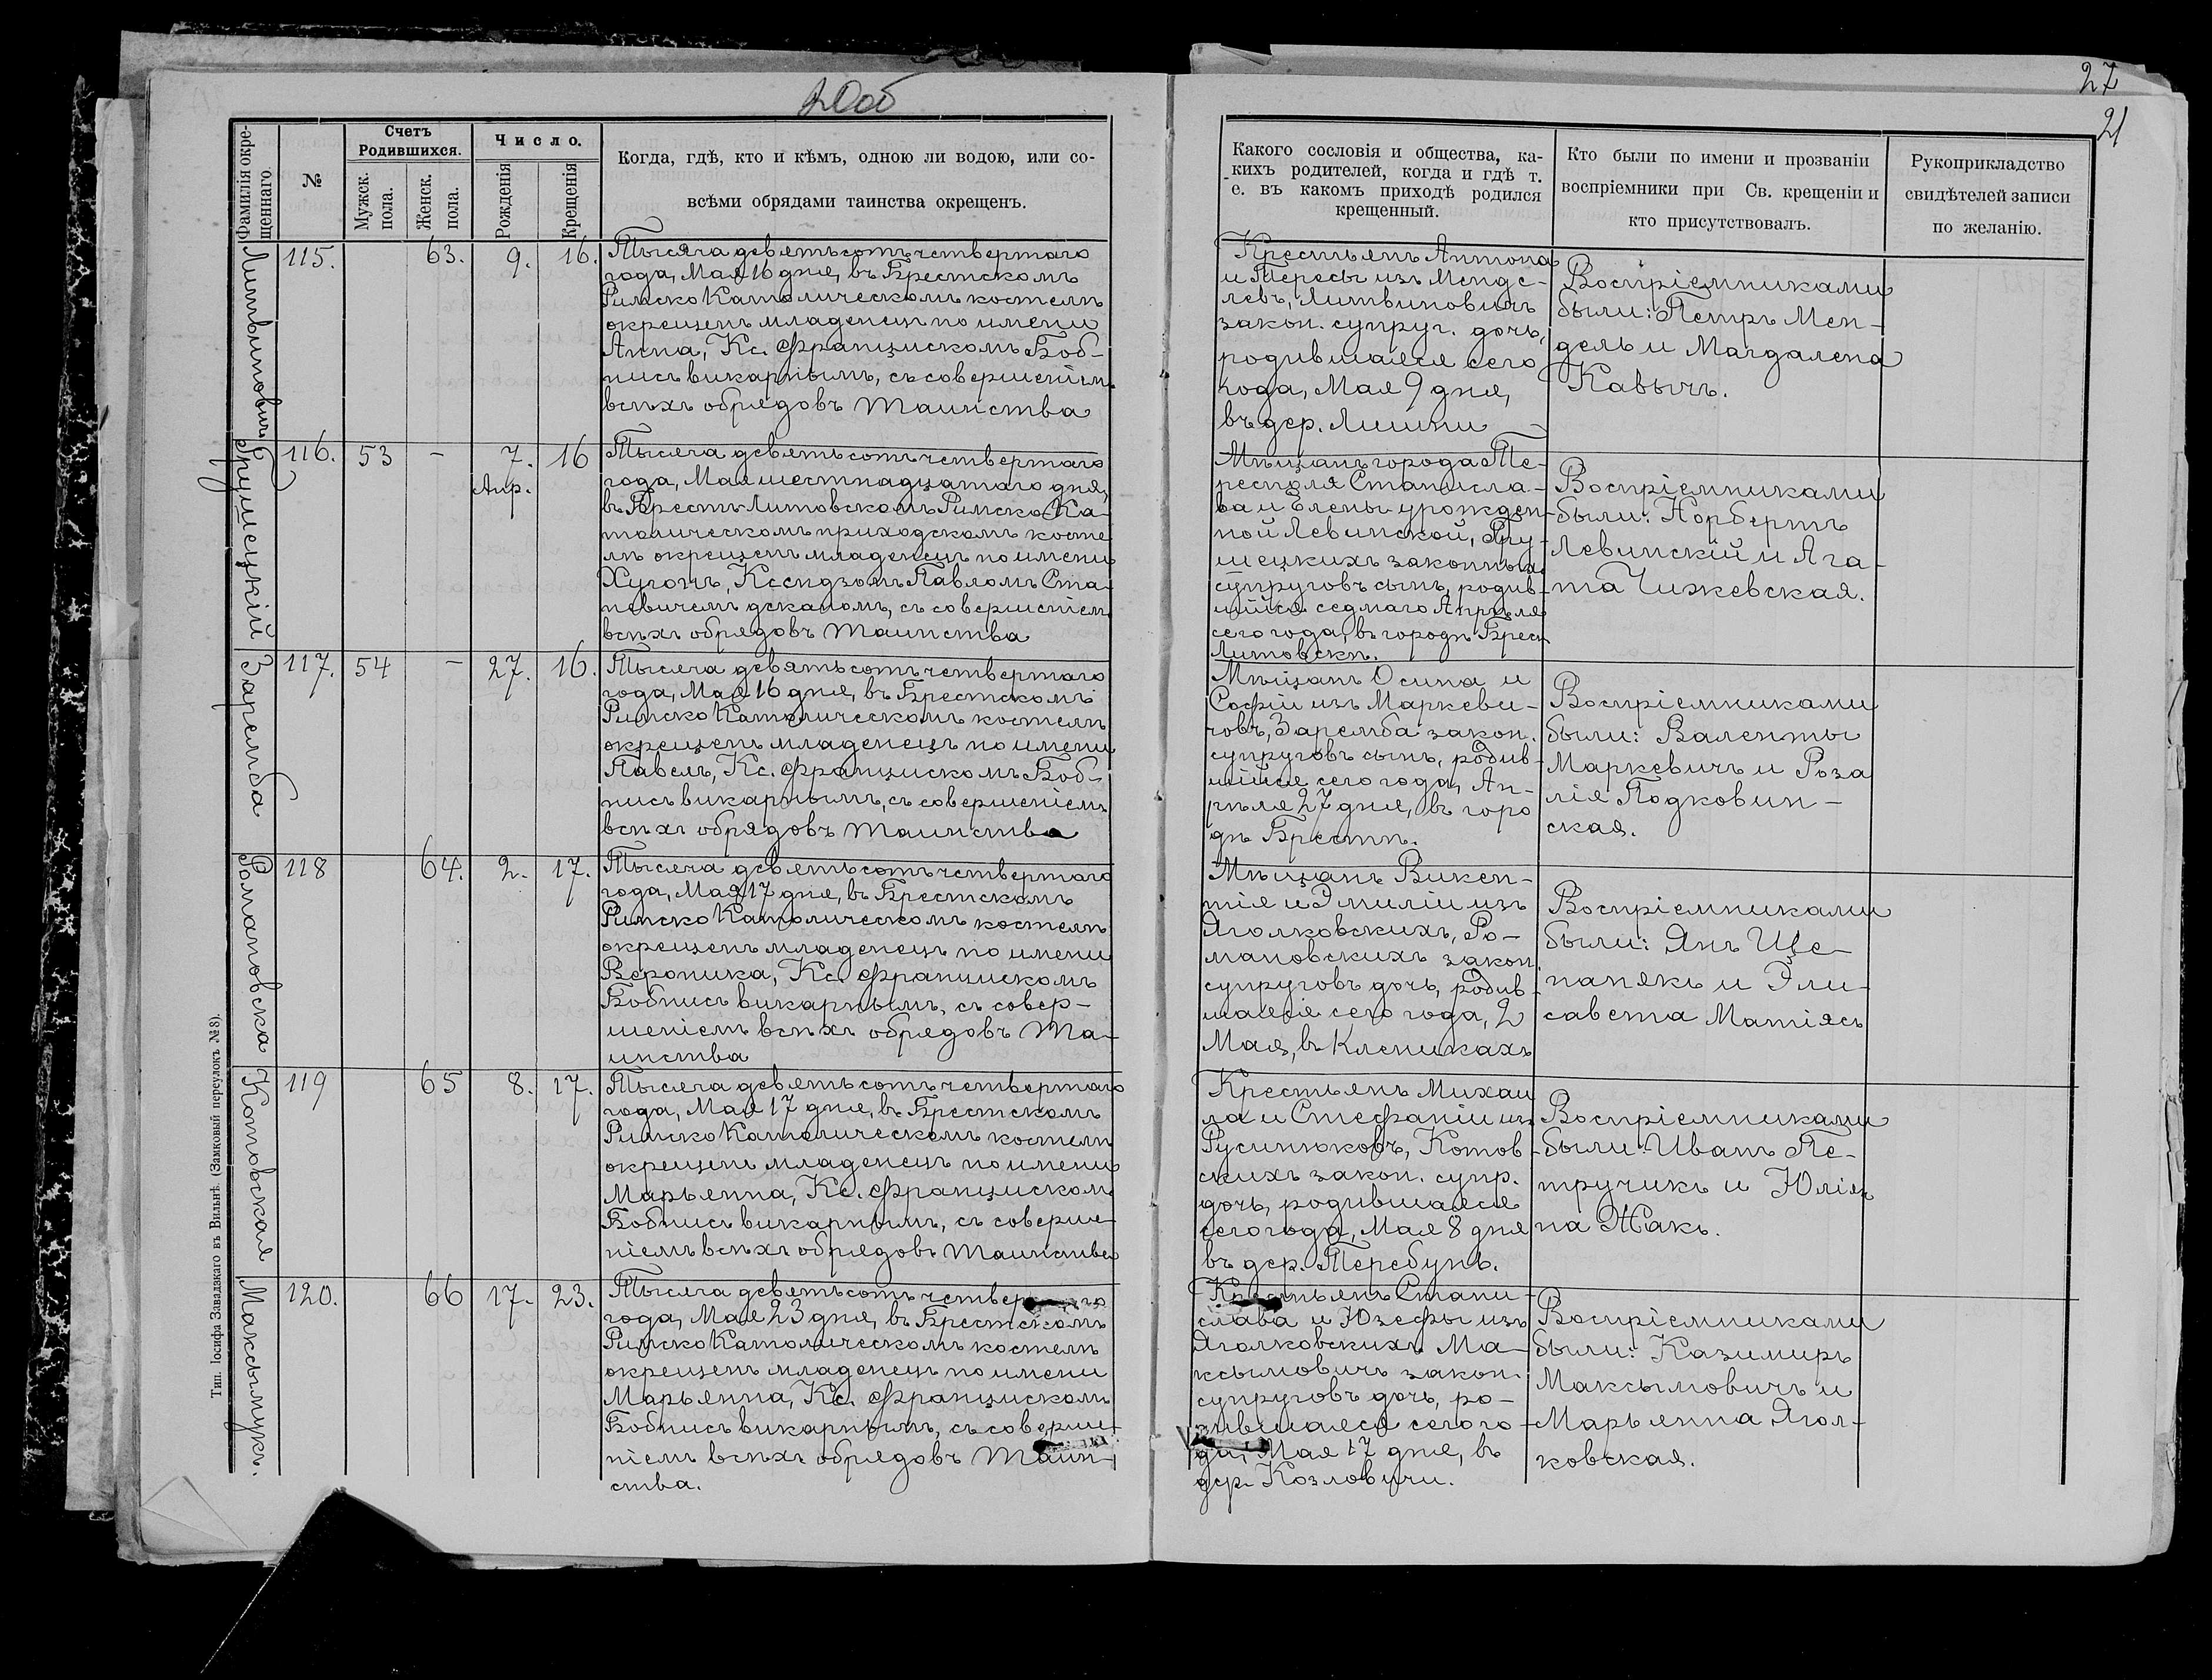 20об
27
21
Фамилія окре-
щеннаго.
№
Счетъ
Родившихся.
Мужск.
пола.
Женск.
пола.
Число.
Рожденія
Крещенія
Когда, гдѣ, кто и кѣмъ, одною ли водою, или со-
всѣми обрядами таинства окрещенъ.
Какого сословія и общества, ка-
кихъ родителей, когда и гдѣ т.
е. въ какомъ приходѣ родился
крещенный.
Кто были по имени и прозваніи
воспріемники при Св. крещеніи и
кто присутствовалъ.
Рукоприкладство
свидѣтелей записи
по желанію.
Литвиновичъ
115. 63. 9. 16.
Тысяча девятьсотъ четвертаго
года, Мая 16 дня, въ Брестскомъ
Римско Католическомъ костелѣ
окрещенъ младенецъ по имени
Анна, Кс. Францискомъ Боб-
нисъ викарнымъ, съ совершеніемъ
всѣхъ обрядовъ таинства
Крестьянъ Антона
и Тересы изъ Менде-
левъ, Литвиновичъ
закон. супруг. дочь,
родившаяся сего
года, Мая 9 дня,
въ дер. Лишни
Воспріемниками
были: Петръ Мен-
дель и Магдалена
Кавычъ.
Грушецкій
116. 53 - 7. Апр. 16
Тысяча девятьсотъ четвертаго
года, Мая шестнадцатаго дня,
въ Брестъ Литовскомъ Римско Ка-
толическомъ приходскомъ косте
лѣ окрещенъ младенецъ по имени
Хугонъ, Ксендзомъ Павломъ Ста-
невичемъ деканомъ, съ совершеніемъ
всѣхъ обрядовъ таинства
Мѣщанъ города Те-
респоля Станисла-
ва и Елены урожден-
ной Левинской, Гру-
шецкихъ законныхъ
супруговъ сынъ, родив-
шійся седмаго Апрѣля
сего года, въ городѣ Брест
Литовскѣ.
Воспріемниками
были: Норбертъ
Левинскій и Ага-
та Чижевская.
Заремба
117. 54 - 27. 16.
Тысяча девятьсотъ четвертаго
года, Мая 16 дня, въ Брестскомъ
Римско Католическомъ костелѣ
окрещенъ младенецъ по имени
Павелъ, Кс. Францискомъ Боб-
нисъ викарнымъ, съ совершеніемъ
всѣхъ обрядовъ таинства
Мѣщанъ Осипа и
Софіи изъ Маркеви-
човъ, Заремба закон.
супруговъ сынъ, родив-
шійся сего года, Ап-
рѣля 27 дня, въ горо
дѣ Брестѣ.
Воспріемниками
были: Валенты
Маркевичъ и Роза
лія Подковин-
ская.
Романовска
118 64. 2. 17.
Тысяча девятьсотъ четвертаго
года, Мая 17 дня, въ Брестскомъ
Римско Католическомъ костелѣ
окрещенъ младенецъ по имени
Вероника, Кс. Францискомъ
Бобнисъ викарнымъ, съ совер-
шеніемъ всѣхъ обрядовъ Та-
инства
Мѣщанъ Викен-
тія и Эмиліи изъ
Яголковскихъ, Ро-
мановскихъ закон.
супруговъ дочь, родив-
шаяся сего года, 2
Мая, въ Кленикахъ
Воспріемниками
были: Янъ Ще-
панякъ и Эли-
савета Матіясъ
Котовская
119 65 8. 17.
Тысяча девятьсотъ четвертаго
года, Мая 17 дня, въ Брестскомъ
Римско Католическомъ костелѣ
окрещенъ младенецъ по имени
Марьянна, Кс. Францискомъ
Бобнисъ викарнымъ, съ соверше-
ніемъ всѣхъ обрядовъ таинства
Крестьянъ Михаи
ла и Стефаніи изъ
Русинюковъ, Котов-
скихъ закон. супр.
дочь, родившаяся
сего года, Мая 8 дня
въ дер. Теребунь.
Воспріемниками
были: Иванъ Пе-
тручикъ и Юлія
на Жакъ.
Максымукъ.
120. 66 17. 23.
Тысяча девятьсотъ четвертаго
года, Мая 23 дня, въ Брестскомъ
Римско Католическомъ костелѣ
окрещенъ младенецъ по имени
Марьянна, Кс. Францискомъ
Бобнисъ викарнымъ, съ соверше-
ніемъ всѣхъ обрядовъ Таин-
ства.
Крестьянъ Стани-
слава и Юзефы изъ
Яголковскихъ Ма-
ксымовичъ закон.
супруговъ дочь, ро-
дившаяся сего го-
да, Мая 17 дня, въ
дер. Козловичи.
Воспріемниками
были: Казимиръ
Максымовичъ и
Марьянна Ягол-
ковская.
Тип. Іосифа Завадзкаго въ Вильнѣ. (Замковый переулокъ №8).